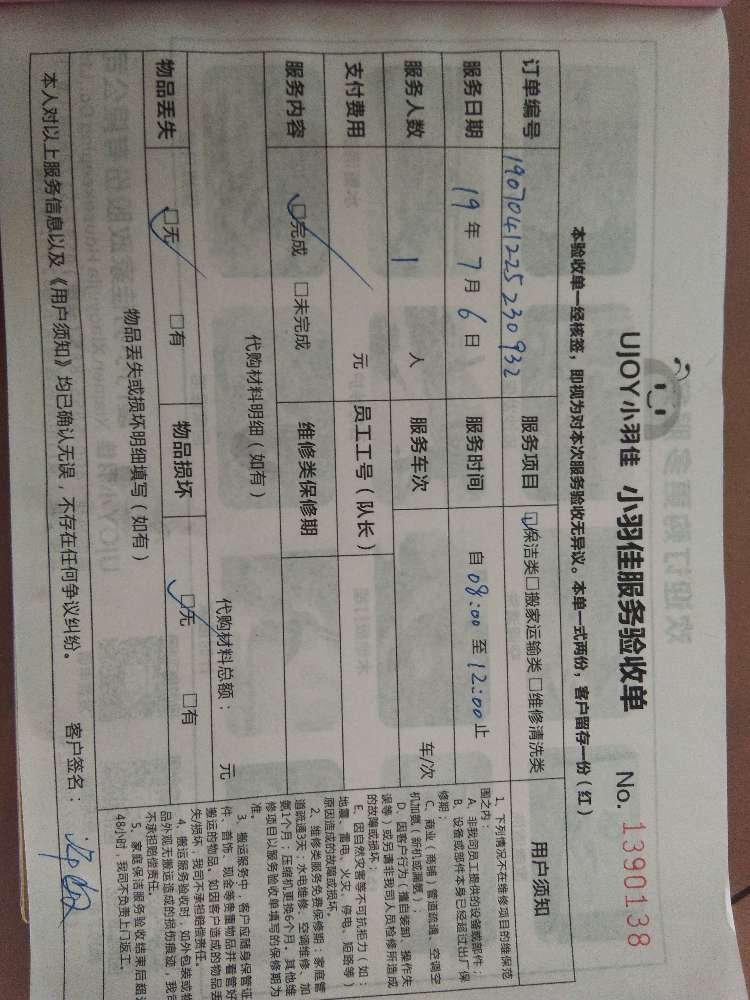 UJOY小羽佳 小羽佳服务验收单 No. 1390138
本验收单一经核签，即视为对本次服务验收无异议。本单一式两份，客户留存一份（红）
订单编号 1907041225230932 服务项目 ☑保洁类□搬家运输类□维修清洗类
服务日期 19年7月6日 服务时间 自08:00至12:00止
服务人数 1 人 服务车次 车/次
支付费用 元 员工工号（队长）
服务内容 ☑完成 □未完成 维修类保修期
代购材料明细（如有）
代购材料总额： 元
物品丢失 ☑无 □有 物品损坏 ☑无 □有
物品丢失或损坏明细填写（如有）
本人对以上服务信息以及《用户须知》均已确认无误，不存在任何争议纠纷。 客户签名：
用户须知
1、下列情况不在维修项目的维保范
围之内：
A、非我司员工提供的设备或部件；
B、设备或部件本身已经超过出厂保
修期；
C、商业（商铺）管道疏通、空调空
机加氨（新机或漏氨）；
D、因客户行为（擅自装卸、操作失
误等）或另请非我司人员检修所造成
的故障或损坏；
E、因自然灾害等不可抗拒力（如：
地震、雷电、火灾、停电、短路等）
原因造成的故障或损坏。
2、维修类服务免费保修期：家庭管
道疏通3天；水电维修、空调维修、加
氨1个月；压缩机更换6个月。其他维
修项目以服务验收单填写的保修期为
准。
3、搬运服务中，客户应随身保管证
件、首饰、现金等贵重物品并看管好
搬运的物品。如因客户造成的物品丢
失/损坏，我司不承担赔偿责任。
4、搬运服务验收时，如外包装或物
品外观无搬运造成的损伤痕迹，我司
不承担赔偿责任。
5、家庭保洁服务验收结束后超过
48小时，我司不负责上门返工。